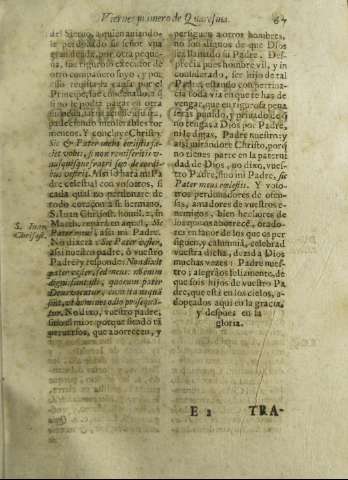 Viernes primero de Quaresma. 67
del Siervo, a quien auiendo-
le perdonado su señor vna
gran deuda, por otra peque-
ña, fue riguroso executor de
otro compañero suyo, y por
esso
Principe, fue condenado, a q
si no le podia pagar en otra
padeciendo intolerables tor-
mentos. Y concluye Christo:
Sic & Pater meus cœlestis fa-
ciet vobis, si non remiseritis v-
nusquisque fratri suo de cordi-
bus vestris. Assi lo hará mi Pa
dre celestial con vosotros, si
cada qual no perdonare de
todo coraçon a su hermano.
S. Iuan Chrisost. homil. 2. in
Matth. repara en aquel, Sic
Pater meus; assi mi Padre.
No dixera: Sic Pater vester,
assi vuestro padre, ò vuestro
Padre; y responde: Non dixit
pater vester, sed meus: non enim
digni sunt isti, quorum pater
Deus vocatur, cum ita nequã
sint, & homines odio prosequã
tur. No dixo, vuestro padre,
sino el mio: porque siendo tã
peruersos, que aborrecen, y
S. Iuan
Chrisost.
persiguen a otros hombres,
no son dignos de que Dios
sea llamado su Padre. Des-
precia pues hombre vil, y in
considerado, ser hijo de tal
Padre, estando con pertina-
cia toda via en que te has de
vengar, que en rigurosa pena
serás punido, y priuado de q
no tengas a Dios por Padre,
ni le digas, Padre nuestro: y
assi mirandote Christo, porq̃
no tienes parte en la paterni
dad de Dios, no dixo, vues-
tro Padre, sino mi Padre, sic
Pater meus cœlestis. Y voso-
tros perdonadores de ofen-
sas, amadores de vuestros e-
nemigos, bien hechores de
los que os aborrecẽ, orado-
res en fauor de los que os per
siguen, y calumniã, celebrad
vuestra dicha, dezid a Dios
muchas vezes: Padre nues-
tro; alegraos felizmente, de
que sois hijos de vuestro Pa
dre, que està en los cielos, a-
doptados aqui en la gracia,
y despues en la
gloria.
E 2 TRA-